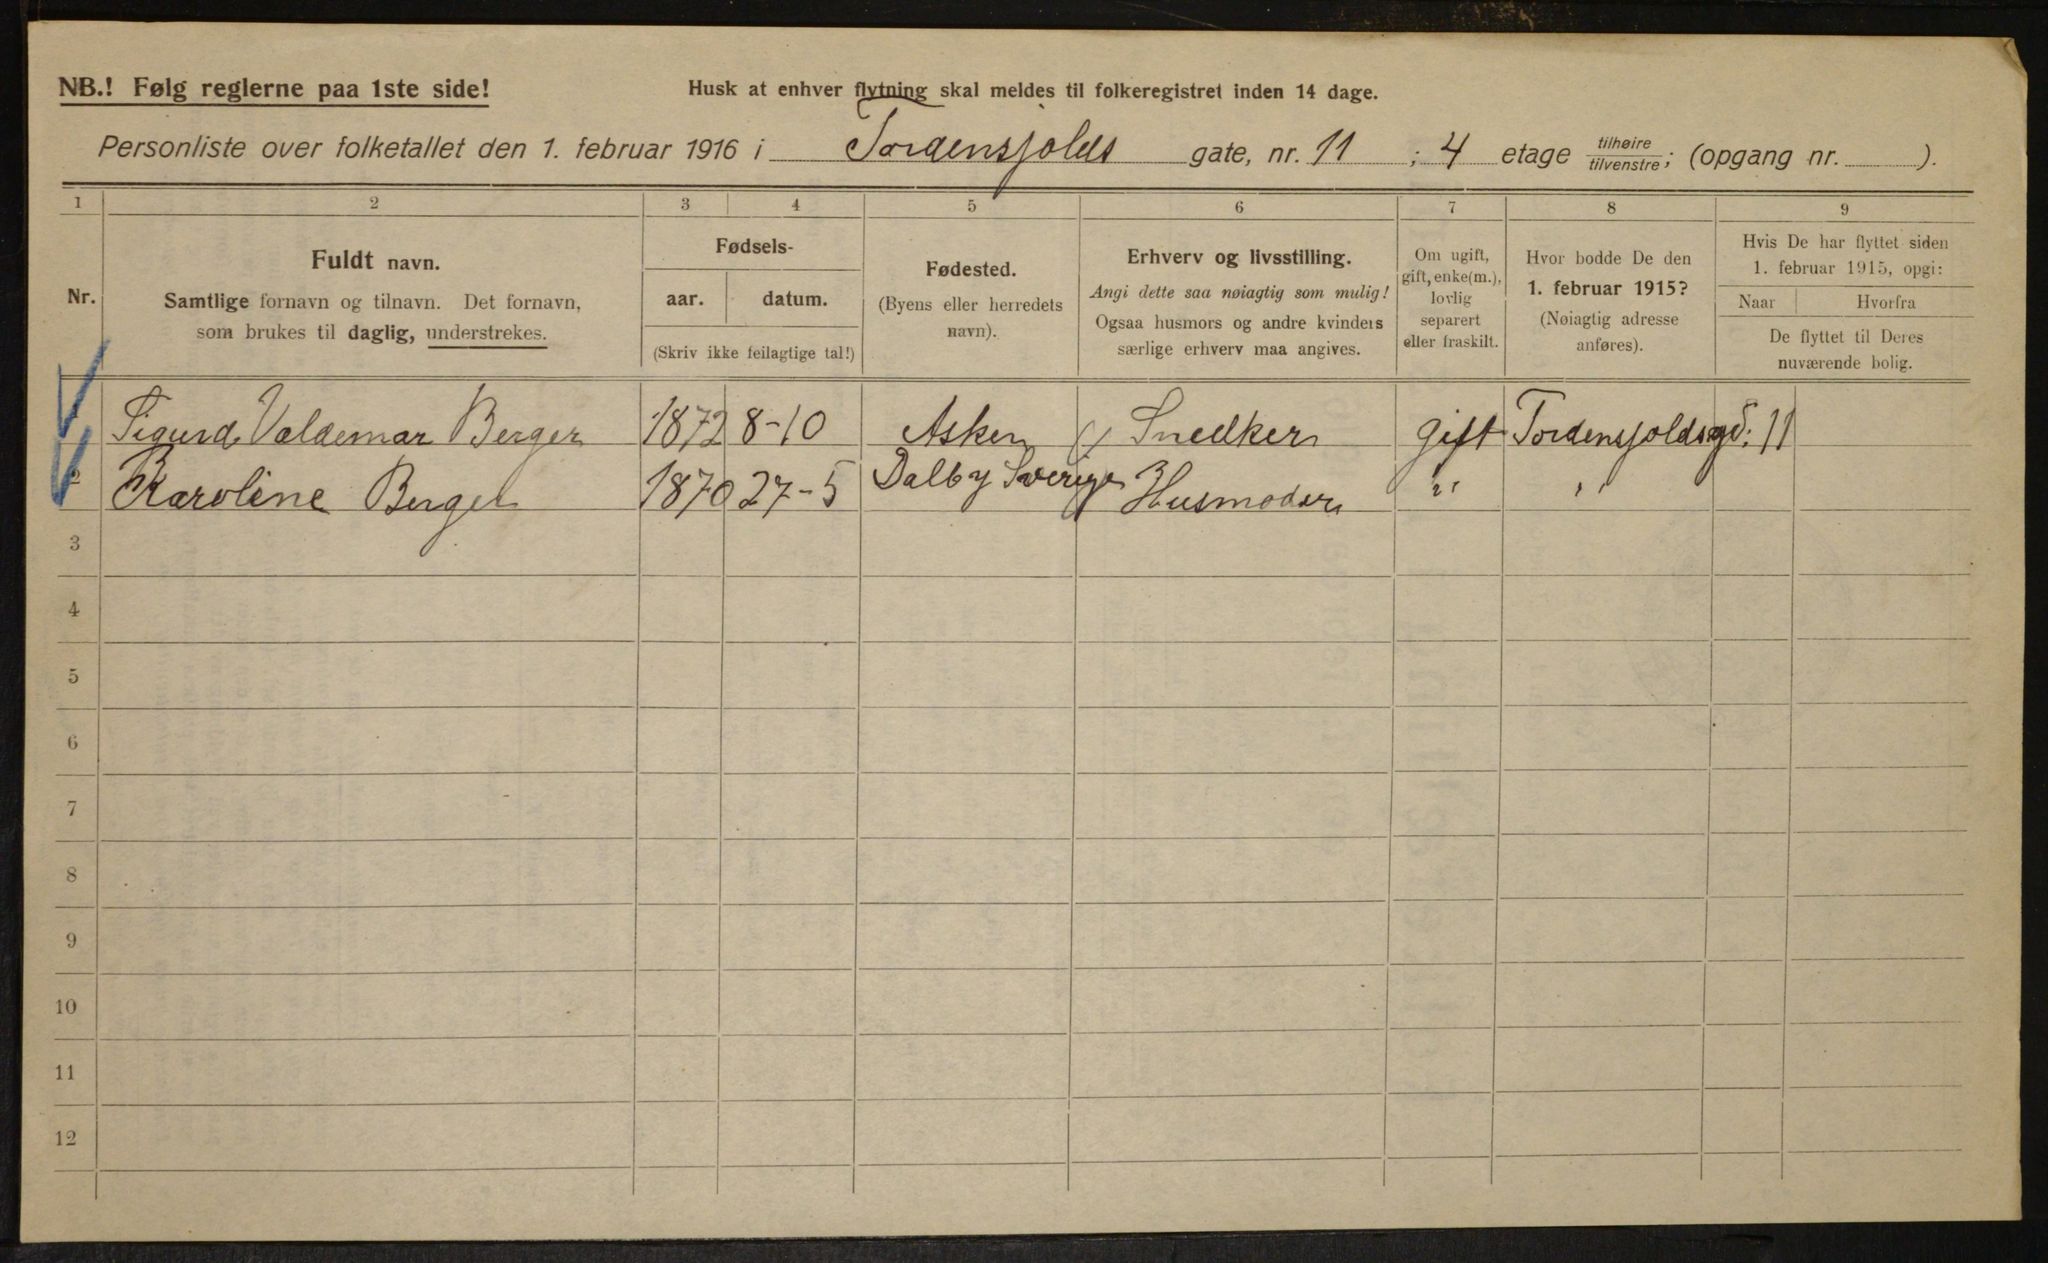 NB.! Følg reglerne paa 1ste side!
Husk at enhver flytning skal meldes til folkeregistret inden 14 dage.
Personliste over folketallet den 1. februar 1916 i Tordensjolds gate, nr. 11 ; 4 etage tilhøire/tilvenstre; (opgang nr. ).
1 2 3 4 5 6 7 8 9
Nr.
Fuldt navn.
Samtlige fornavn og tilnavn. Det fornavn,
som brukes til daglig, understrekes.
Fødsels-
aar. datum.
(Skriv ikke feilagtige tal!)
Fødested.
(Byens eller herredets
navn).
Erhverv og livsstilling.
Angi dette saa nøiagtig som mulig!
Ogsaa husmors og andre kvinders
særlige erhverv maa angives.
Om ugift,
gift, enke(m.),
lovlig
separert
eller fraskilt.
Hvor bodde De den
1. februar 1915?
(Nøiagtig adresse
anføres).
Hvis De har flyttet siden
1. februar 1915, opgi:
Naar Hvorfra
De flyttet til Deres
nuværende bolig.
Sigurd Valdemar Berger 1872 8-10 Asker Snedker gift Tordensjoldsgd: 11
2 Karoline Berger 1870 27-5 Dalby Sverige Husmoder " "
3
4
5
6
7
8
9
10
11
12